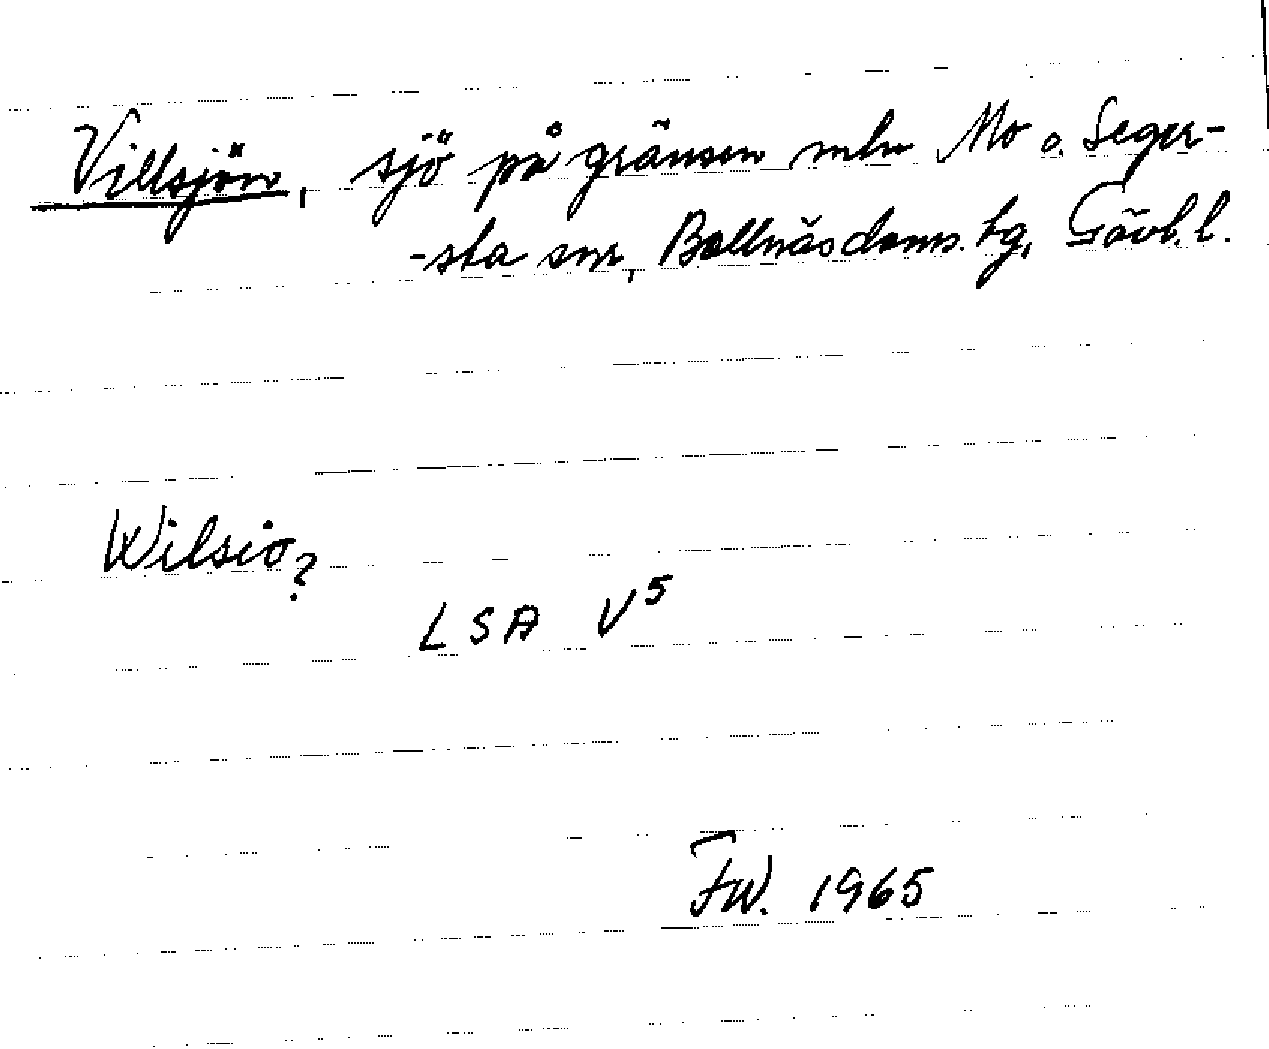 Villsjön, sjö på gränsen mln Mo o. Seger-
-sta snr, Bollnäs doms. tg, Gävl. l.
Wilsio?
LSA V5
FW. 1965